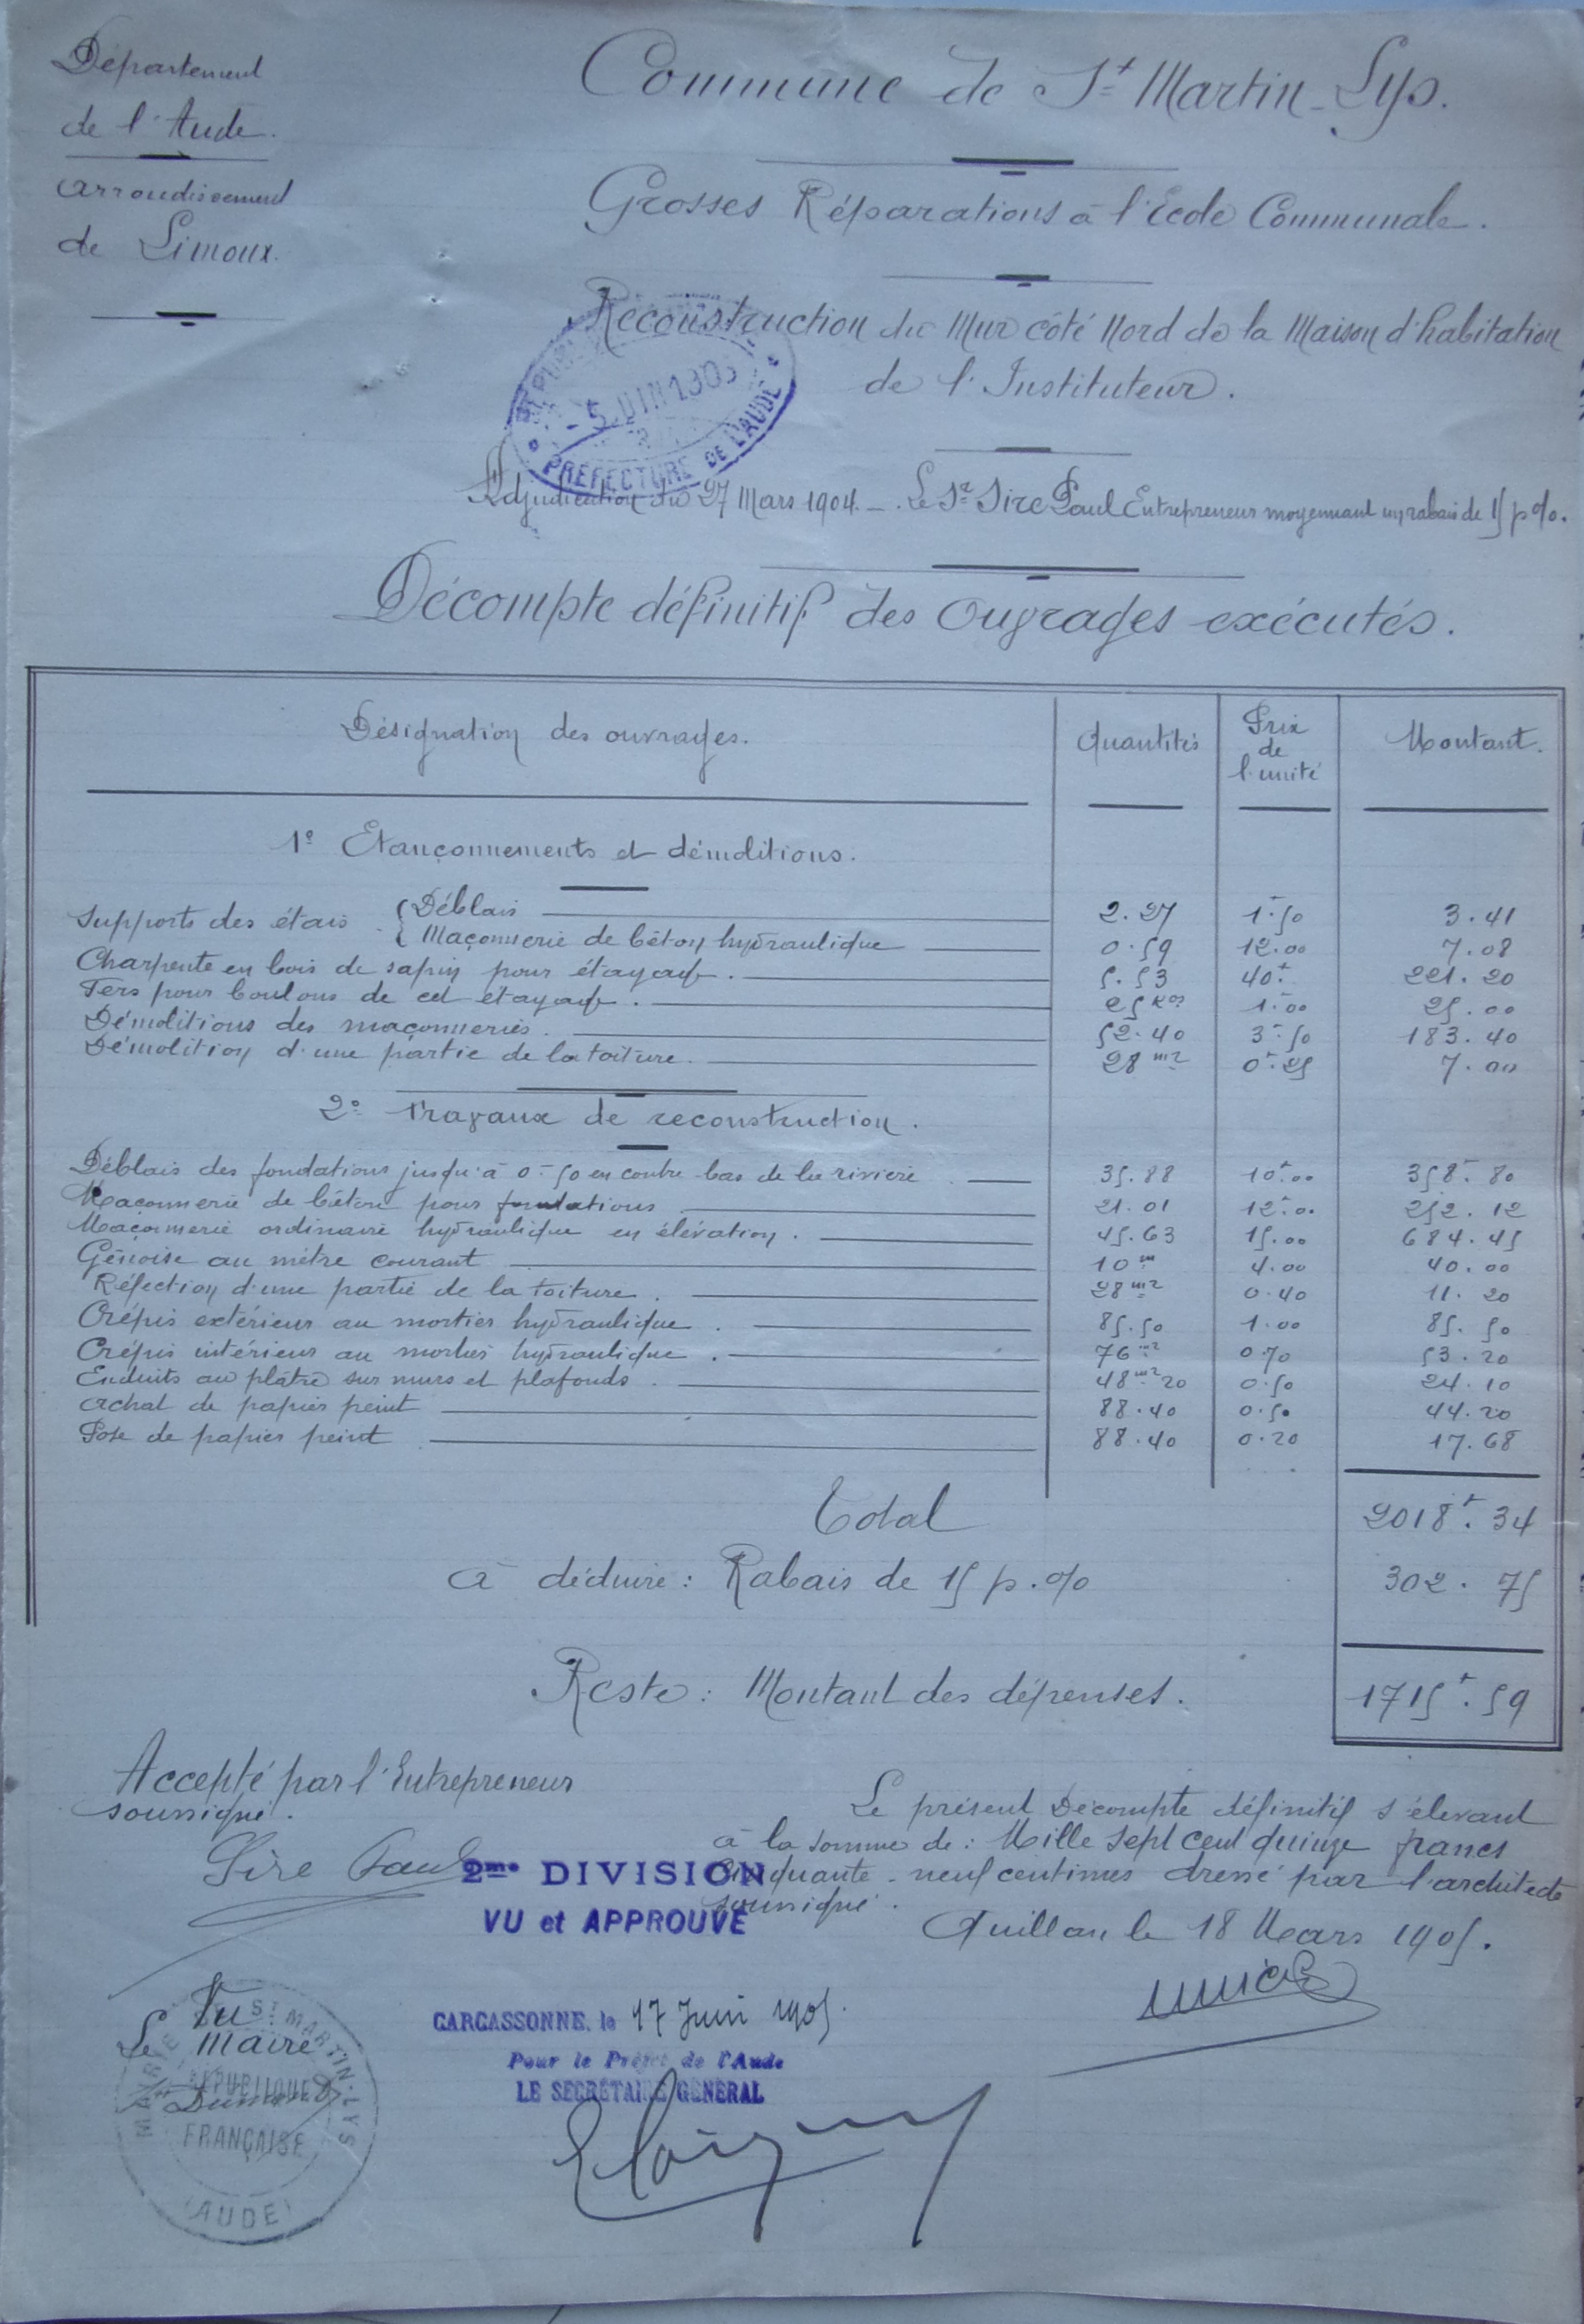 Département
de l'Aude.
Arrondissement
de Limoux.
Commune de St Martin-Lys.
Grosses Réparations à l'Ecole Communale.
Reconstruction du Mur côté Nord de la Maison d'habitation
de l'Instituteur.
PRÉFECTURE DE L'AUDE
Adjudication du 27 Mars 1904. - Le Sr Sire Paul Entrepreneur moyennant un rabais de 15 p %.
Décompte définitif des Ouvrages exécutés.
Désignation des ouvrages. Quantités Prix de l'unité Montant.
1º Etançonnements et démolitions.
Supports des étais { Déblais 2.27 1f.50 3.41
Maçonnerie de béton hydraulique 0.59 12.00 7.08
Charpente en bois de sapin pour étayage. 5.53 40f. 221.20
Fers pour boulons de cet étayage. 25 kos 1f.00 25.00
Démolitions des maçonneries. 52.40 3f.50 183.40
Démolition d'une partie de la toiture. 28 m2 0f.25 7.00
2º Travaux de reconstruction.
Déblais des fondations jusqu'à 0m50 en contre bas de la rivière 35.88 10f.00 358f.80
Maçonnerie de béton pour fondations 21.01 12f.00 252.12
Maçonnerie ordinaire hydraulique en élévation. 45.63 15.00 684.45
Génoise au mètre courant 10m 4.00 40.00
Réfection d'une partie de la toiture. 28 m2 0.40 11.20
Crépis extérieur au mortier hydraulique. 85.50 1.00 85.50
Crépis intérieur au mortier hydraulique. 76 m2 0.70 53.20
Enduits au plâtre sur murs et plafonds. 48 m2 20 0.50 24.10
Achat de papier peint 88.40 0.50 44.20
Pose de papier peint 88.40 0.20 17.68
Total 2018f.34
à déduire: Rabais de 15 p.% 302.75
Reste: Montant des dépenses. 1715f.59
Accepté par l'Entrepreneur
soussigné.
Sire Paul
Le présent Décompte définitif s'élevant
à la somme de: Mille sept cent quinze francs
Cinquante-neuf centimes dressé par l'architecte
soussigné.
Quillan, le 18 Mars 1905.
2me DIVISION
VU et APPROUVÉ
CARCASSONNE, le 17 Juin 1905.
Pour le Préfet de l'Aude
LE SECRÉTAIRE GÉNÉRAL
Vu
Le Maire
MAIRIE ST MARTIN-LYS
RÉPUBLIQUE
FRANÇAISE
(AUDE)